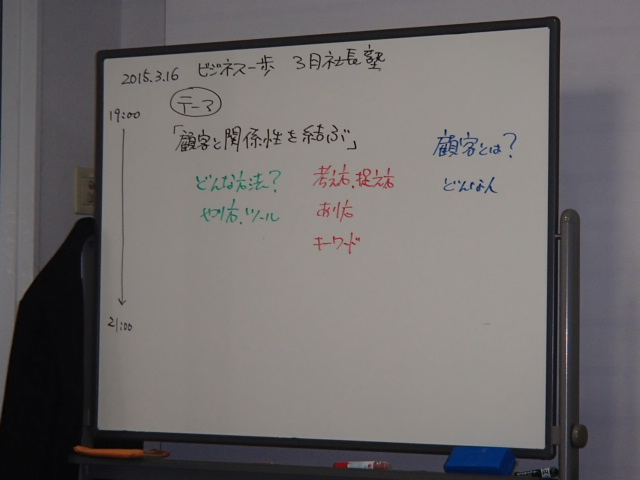 2015.3.16 ビジネス一歩 3月社長塾
テーマ
19:00
「顧客と関係性を結ぶ」
顧客とは?
どんな方法?
考え方、捉え方
どんな人
やり方、ツール
あり方
キーワード
21:00